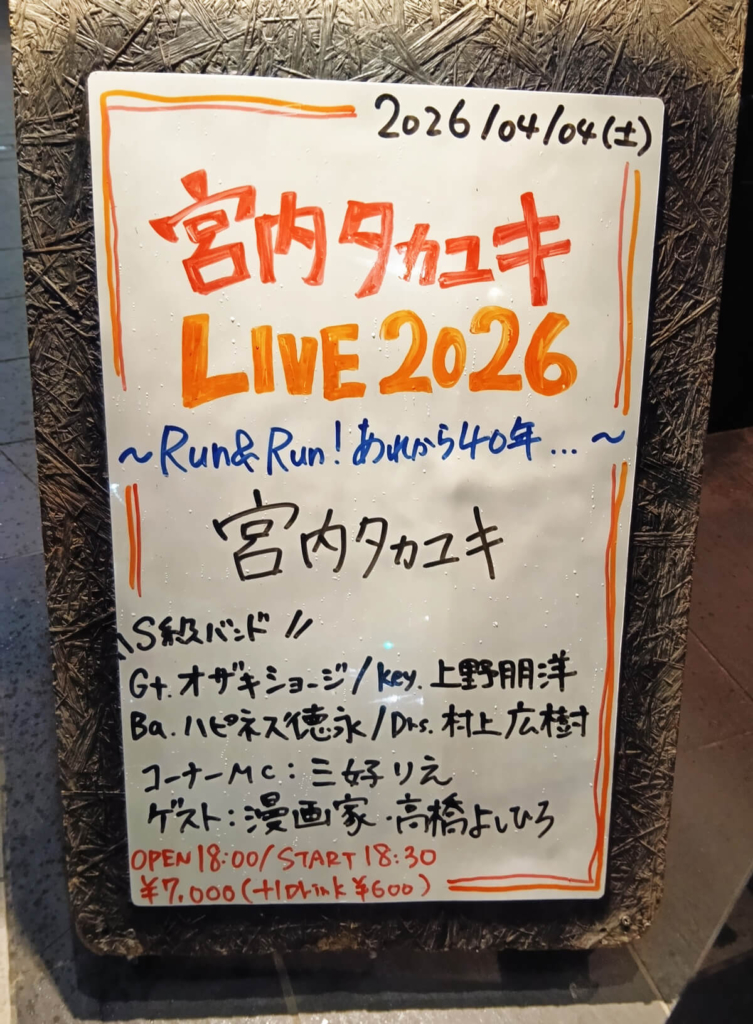 2026/04/04(土)
宮内タカユキ
LIVE2026
～Run&Run!あれから40年...～
宮内タカユキ
\\S級バンド//
Gt.オザキショージ/key.上野朋洋
Ba.ハピネス徳永/Drs.村上広樹
コーナーMC:三好りえ
ゲスト:漫画家・高橋よしひろ
OPEN18:00/START18:30
¥7,000(+1Drink¥600)